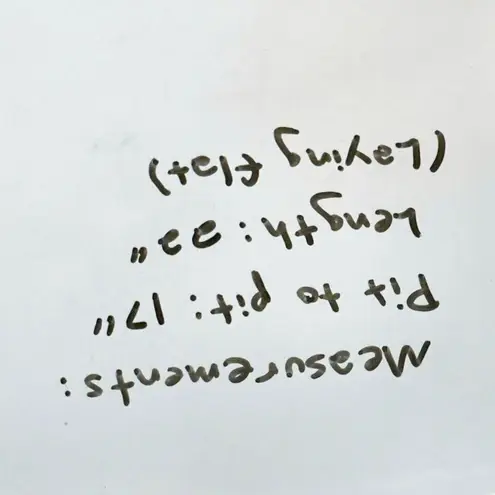 Measurements:
Pit to pit: 17"
Length: 22"
(Laying flat)